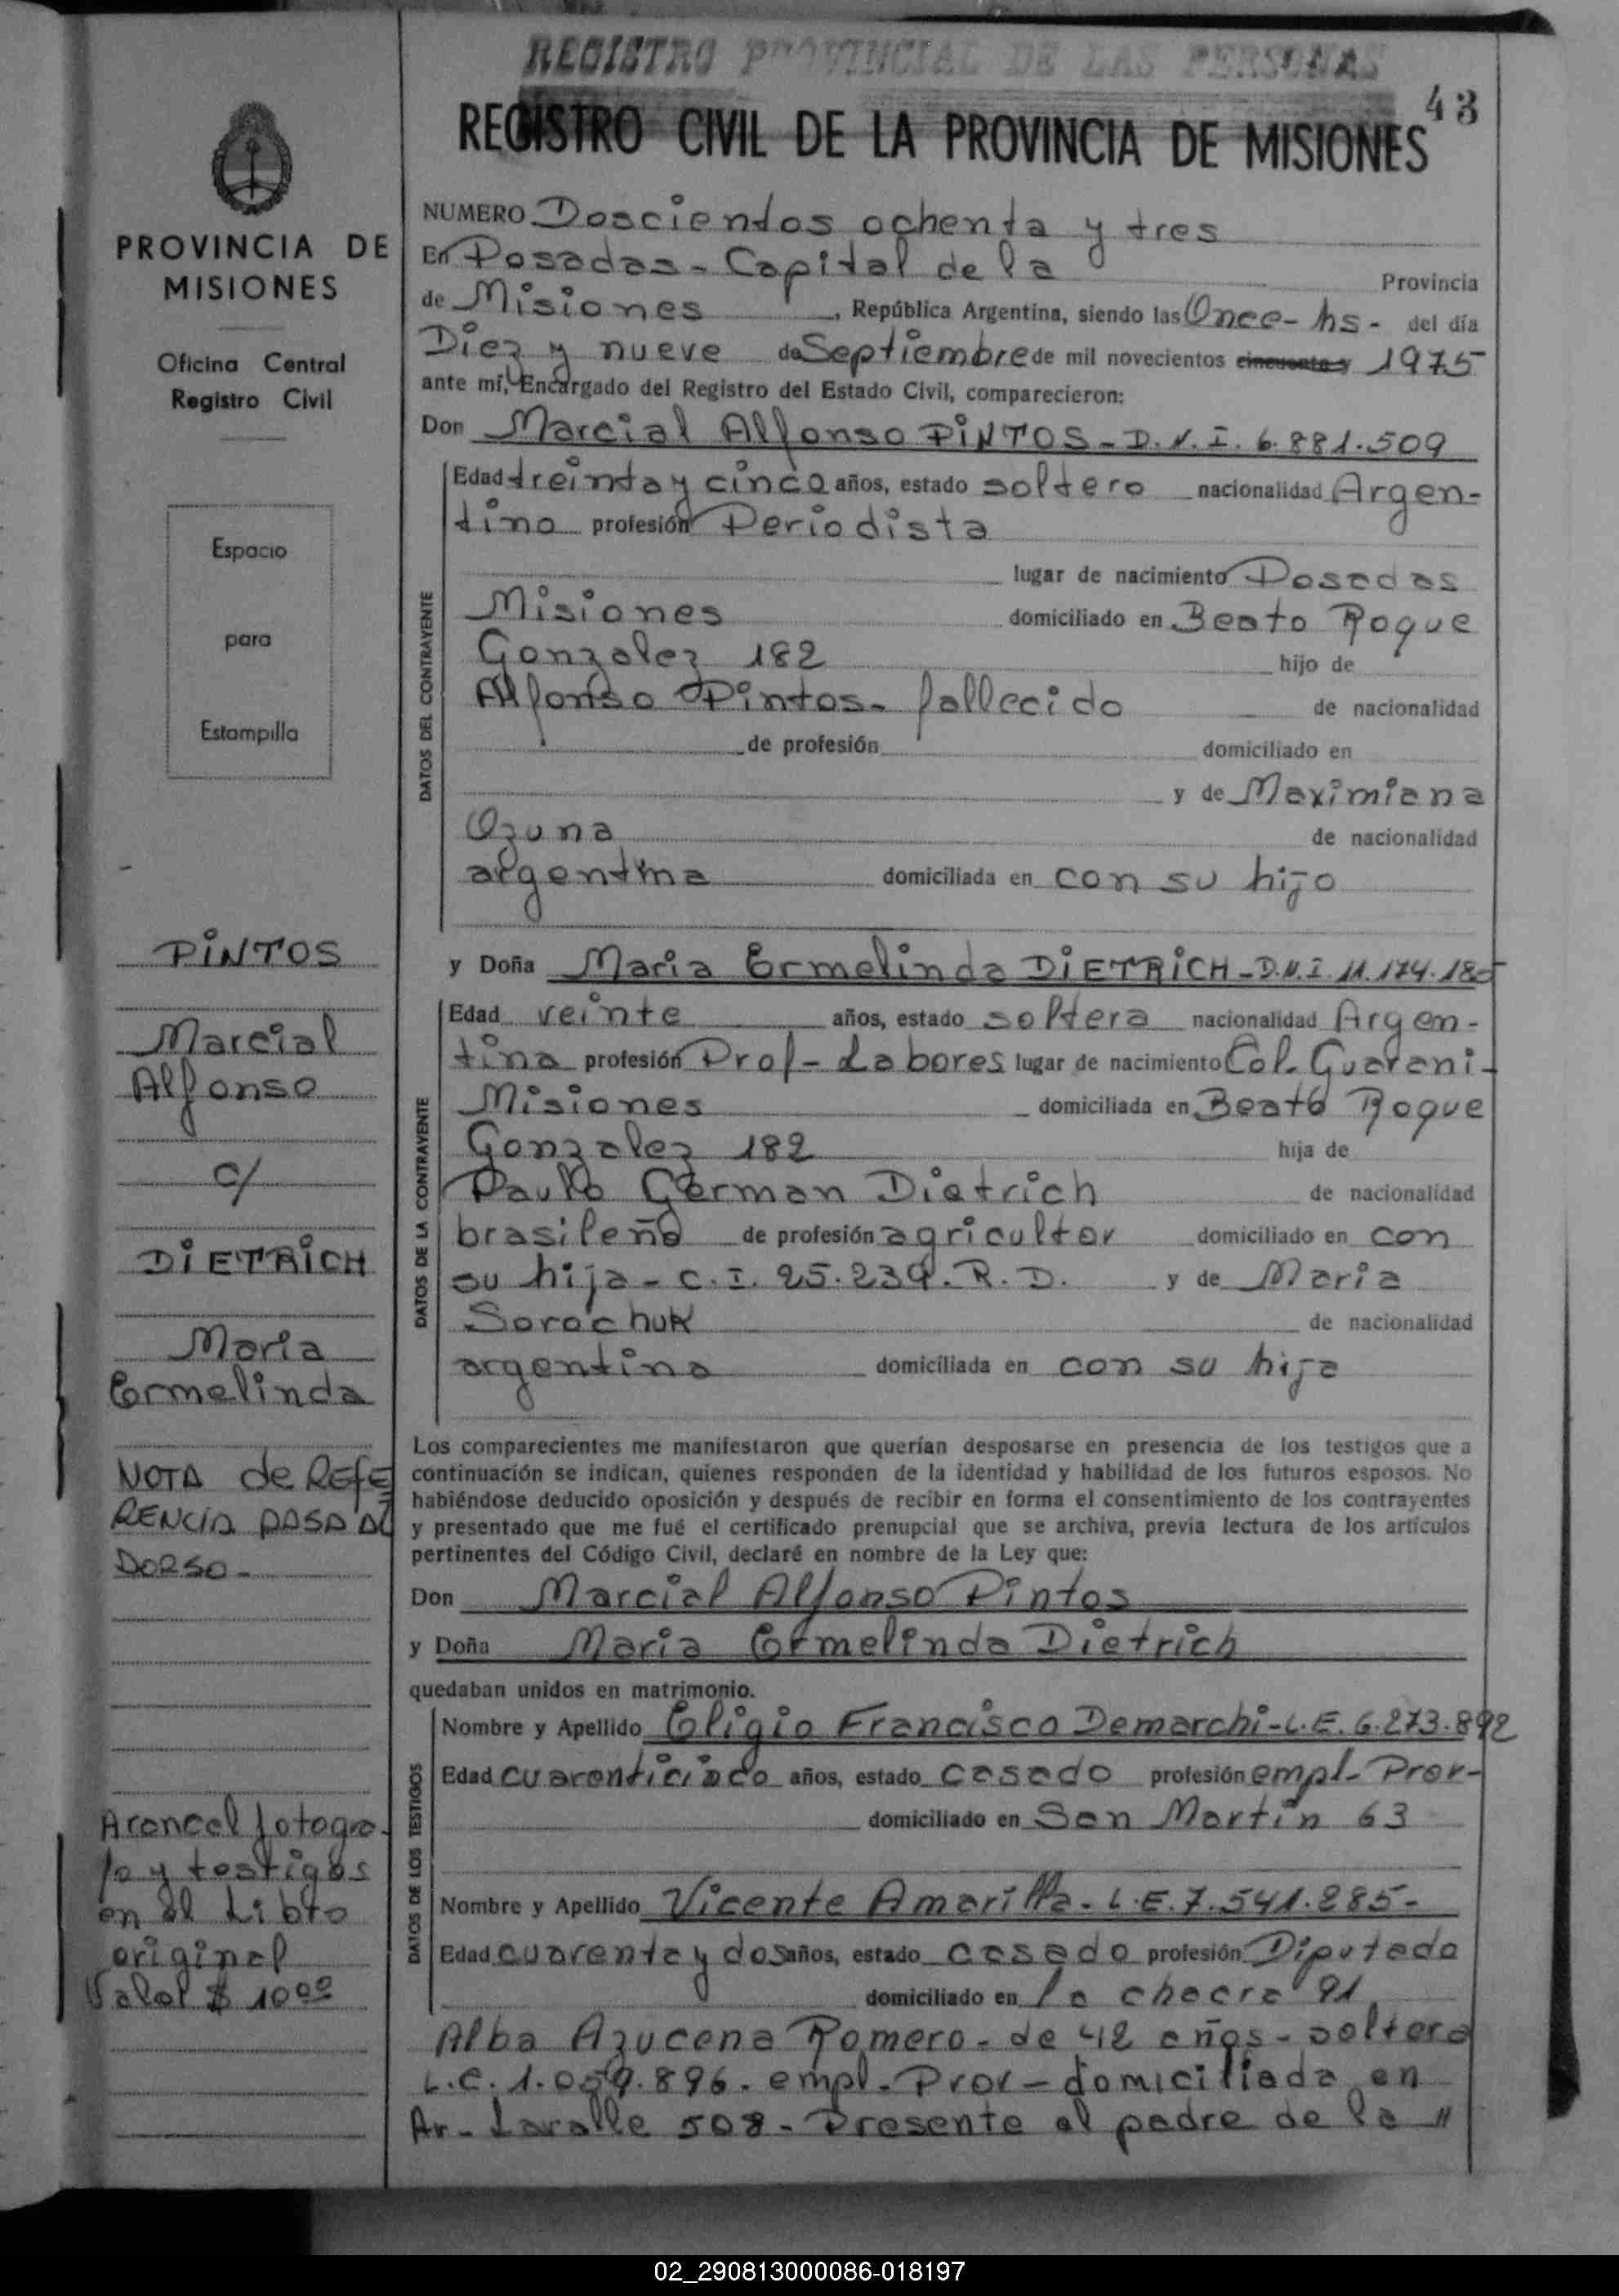 REGISTRO PROVINCIAL DE LAS PERSONAS
43
REGISTRO CIVIL DE LA PROVINCIA DE MISIONES
PROVINCIA DE
MISIONES
Oficina Central
Registro Civil
Espacio
para
Estampilla
PINTOS
Marcial
Alfonso
c/
DIETRICH
Maria
Ermelinda
NOTA de REFE
RENCIA PASA AL
DORSO-
Arancel fotogra-
fo y testigos
en el Libro
original
Valor $ 10⁰⁰
NUMERO Doscientos ochenta y tres
En Posadas - Capital de la Provincia
de Misiones, República Argentina, siendo las Once- hs- del día
Diez y nueve de Septiembre de mil novecientos cincuenta y 1975
ante mí, Encargado del Registro del Estado Civil, comparecieron:
Don Marcial Alfonso PINTOS - D.N.I. 6.881.509
DATOS DEL CONTRAYENTE
Edad treinta y cinco años, estado soltero nacionalidad Argen-
tino profesión Periodista
lugar de nacimiento Posadas
Misiones domiciliado en Beato Roque
Gonzalez 182 hijo de
Alfonso Pintos- fallecido de nacionalidad
de profesión domiciliado en
y de Maximiana
Ozuna de nacionalidad
argentina domiciliada en con su hijo
y Doña Maria Ermelinda DIETRICH - D.N.I. 11.174.180
DATOS DE LA CONTRAYENTE
Edad veinte años, estado soltera nacionalidad Argen-
tina profesión Prof- Labores lugar de nacimiento Col. Guarani-
Misiones domiciliada en Beato Roque
Gonzalez 182 hija de
Paulo German Dietrich de nacionalidad
brasileño de profesión agricultor domiciliado en con
su hija - C.I. 25.239. R.D. y de Maria
Sorochuk de nacionalidad
argentina domiciliada en con su hija
Los comparecientes me manifestaron que querían desposarse en presencia de los testigos que a
continuación se indican, quienes responden de la identidad y habilidad de los futuros esposos. No
habiéndose deducido oposición y después de recibir en forma el consentimiento de los contrayentes
y presentado que me fué el certificado prenupcial que se archiva, previa lectura de los artículos
pertinentes del Código Civil, declaré en nombre de la Ley que:
Don Marcial Alfonso Pintos
y Doña Maria Ermelinda Dietrich
quedaban unidos en matrimonio.
DATOS DE LOS TESTIGOS
Nombre y Apellido Eligio Francisco Demarchi - L.E. 6.273.892
Edad cuarenticinco años, estado casado profesión empl- Prov-
domiciliado en San Martin 63
Nombre y Apellido Vicente Amarilla - L.E. 7.541.285-
Edad cuarenta y dos años, estado casado profesión Diputado
domiciliado en la chacra 91
Alba Azucena Romero - de 42 años - soltera
L.C. 1.059.896. empl- Prov - domiciliada en
Av- Lavalle 508 - Presente el padre de la "
02_290813000086-018197